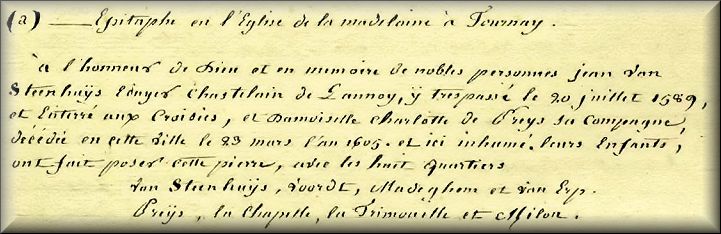 (a) — Epitaphe en l'Eglise de la madelaine à Tournay.
à l'honneur de Dieu et en memoire de nobles personnes jean van
Steenhuÿs Ecuyer Chastelain de Lannoy, ÿ trespassé le 20 juillet 1589,
et Enterré aux Croisiés, et Damoiselle Charlotte de Preÿs sa Compagne,
décédée en cette ville le 23 mars l'an 1605. et ici inhumé. leurs Enfants,
ont fait poser cette pierre, avec les huit quartiers
van Steenhuÿs, voordt, Madeghem et van Erp.
Preÿs, la Chapelle, la Trimouille et Milon.